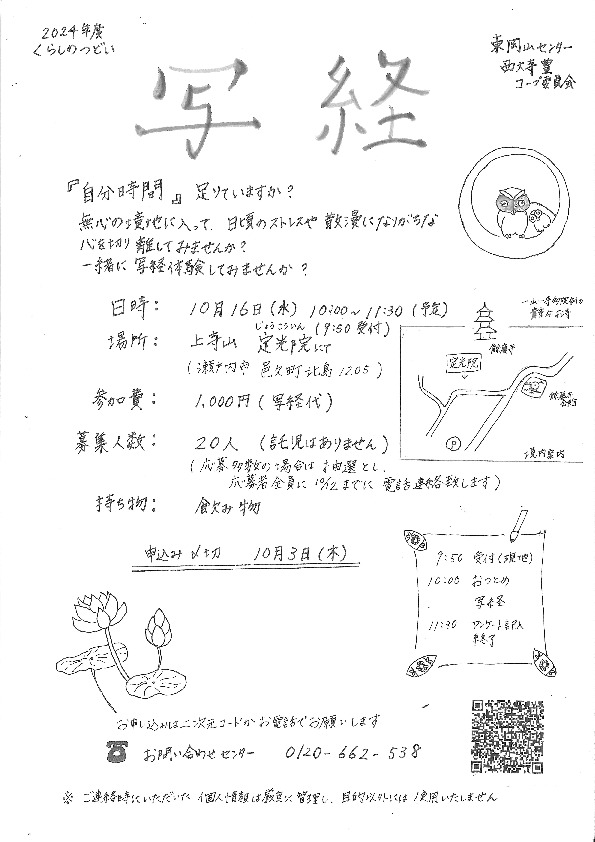 2024年度
くらしのつどい
東岡山センター
西大寺豊
コープ委員会
写経
『自分時間』足りていますか？
無心の境地に入って、日頃のストレスや散漫になりがちな
心を切り離してみませんか？
一緒に写経体験してみませんか？
日時： 10月16日(水) 10:00～11:30(予定)
(9:50受付)
場所： 上寺山 定光院にて
じょうこういん
(瀬戸内市 邑久町北島1205)
参加費： 1,000円(写経代)
募集人数： 20人 (託児はありません)
(応募多数の場合は抽選とし、
応募者全員に10/12までに電話連絡致します)
持ち物： 飲み物
申込み〆切 10月3日(木)
定光院
P
境内案内
9:50 受付(現地)
10:00 おつとめ
写経
11:30 アンケート記入
終了
お申し込みは二次元コードかお電話でお願いします
お問い合わせセンター 0120-662-538
※ ご連絡時にいただいた個人情報は厳重に管理し、目的以外には使用いたしません